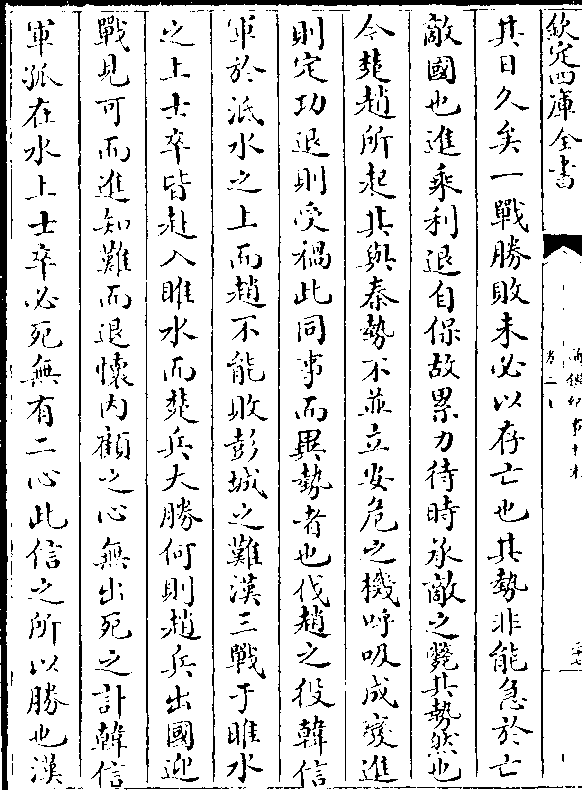 欽定四庫全書
其日久矣一戰勝敗未必以存亡也其勢非能急於亡
敵國也進乘利退自保故累力待時承敵之斃其勢然也
今楚趙所起其與秦勢不並立安危之機呼吸成變進
則定功退則受禍此同事而異勢者也伐趙之役韓信
軍於泜水之上而趙不能敗彭城之難漢王戰于睢水
之上士卒皆赴入睢水而楚兵大勝何則趙兵出國迎
戰見可而進知難而退懷内顧之心無出死之計韓信
軍孤在水上士卒必死無有二心此信之所以勝也漢